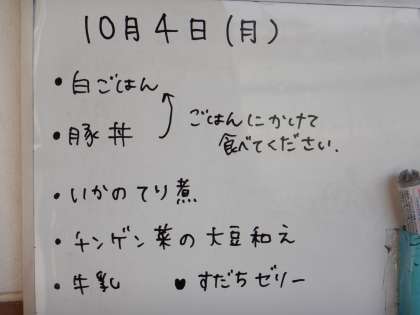 10月4日(月)
・白ごはん
・豚丼
ごはんにかけて
食べてください.
・いかのてり煮
・チンゲン菜の大豆和え
・牛乳 ♥すだちゼリー